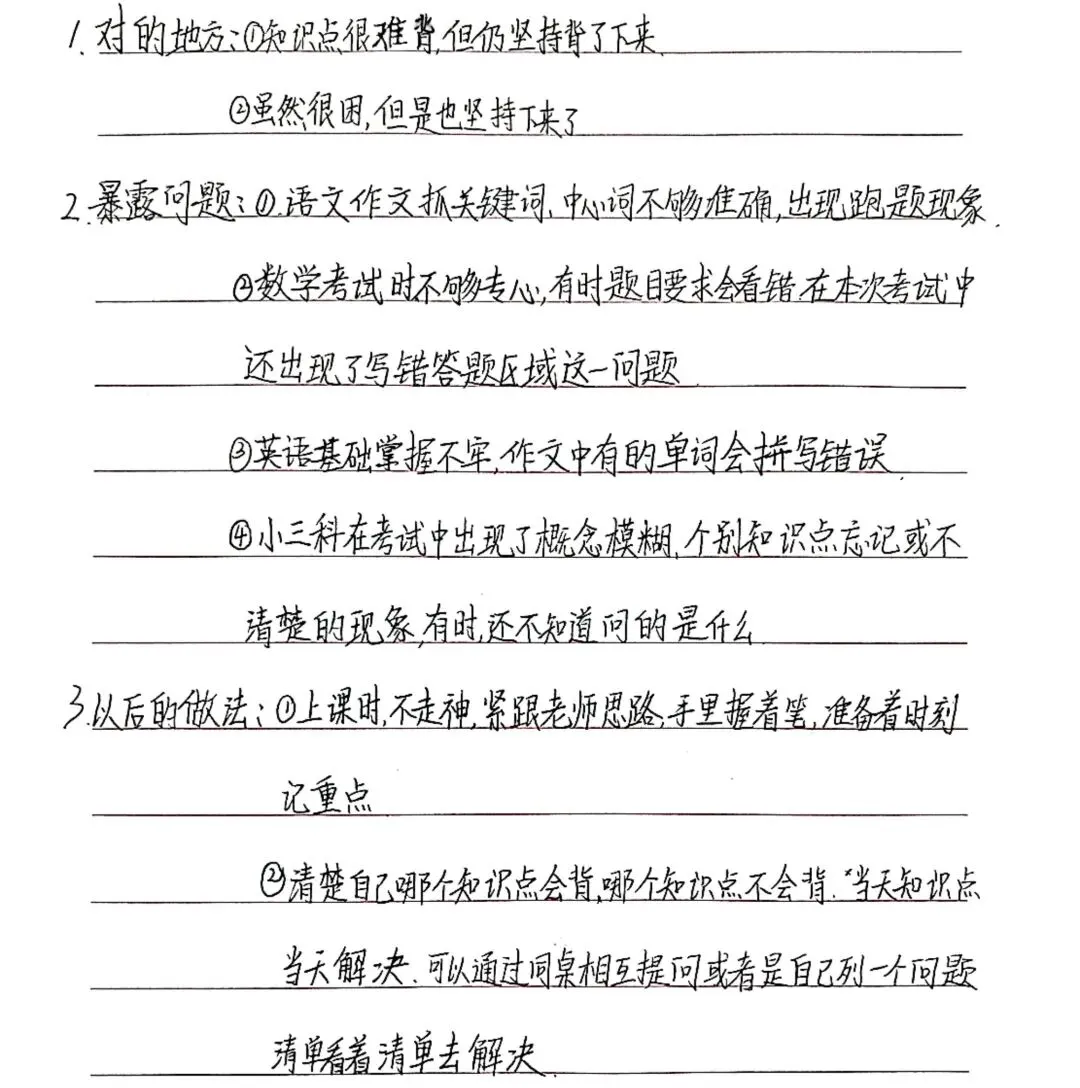 1.对的地方:①知识点很难背,但仍坚持背了下来.
②虽然很困,但是也坚持下来了
2.暴露问题:①.语文作文抓关键词,中心词不够准确,出现跑题现象.
②数学考试时不够专心,有时题目要求会看错.在本次考试中
还出现了写错答题区域这一问题.
③英语基础掌握不牢,作文中有的单词会拼写错误.
④小三科在考试中出现了概念模糊,个别知识点忘记或不
清楚的现象,有时,还不知道问的是什么.
3.以后的做法:①上课时,不走神,紧跟老师思路,手里握着笔,准备着时刻
记重点
②清楚自己哪个知识点会背,哪个知识点不会背.当天知识点
当天解决.可以通过同桌相互提问或者是自己列一个问题
清单看着清单去解决.